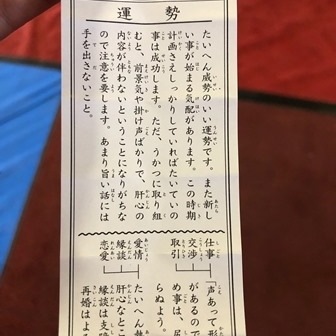 運勢
たいへん威勢のいい運勢です。また新し
い事が始まる気配があります。この時期
計画さえしっかりしていればたいていの
事は成功します。ただ、うかつに取り組
むと、前景気や掛け声ばかりで、肝心の
内容が伴わないということになりがちな
ので注意を要します。あまり旨い話には
手を出さないこと。
仕事
交渉
取引
声あって形
があるので
め事は、尻
らぬよう。
愛情
縁談
恋愛
たいへん勢
肝心なとこ
縁談は支
再婚はよ